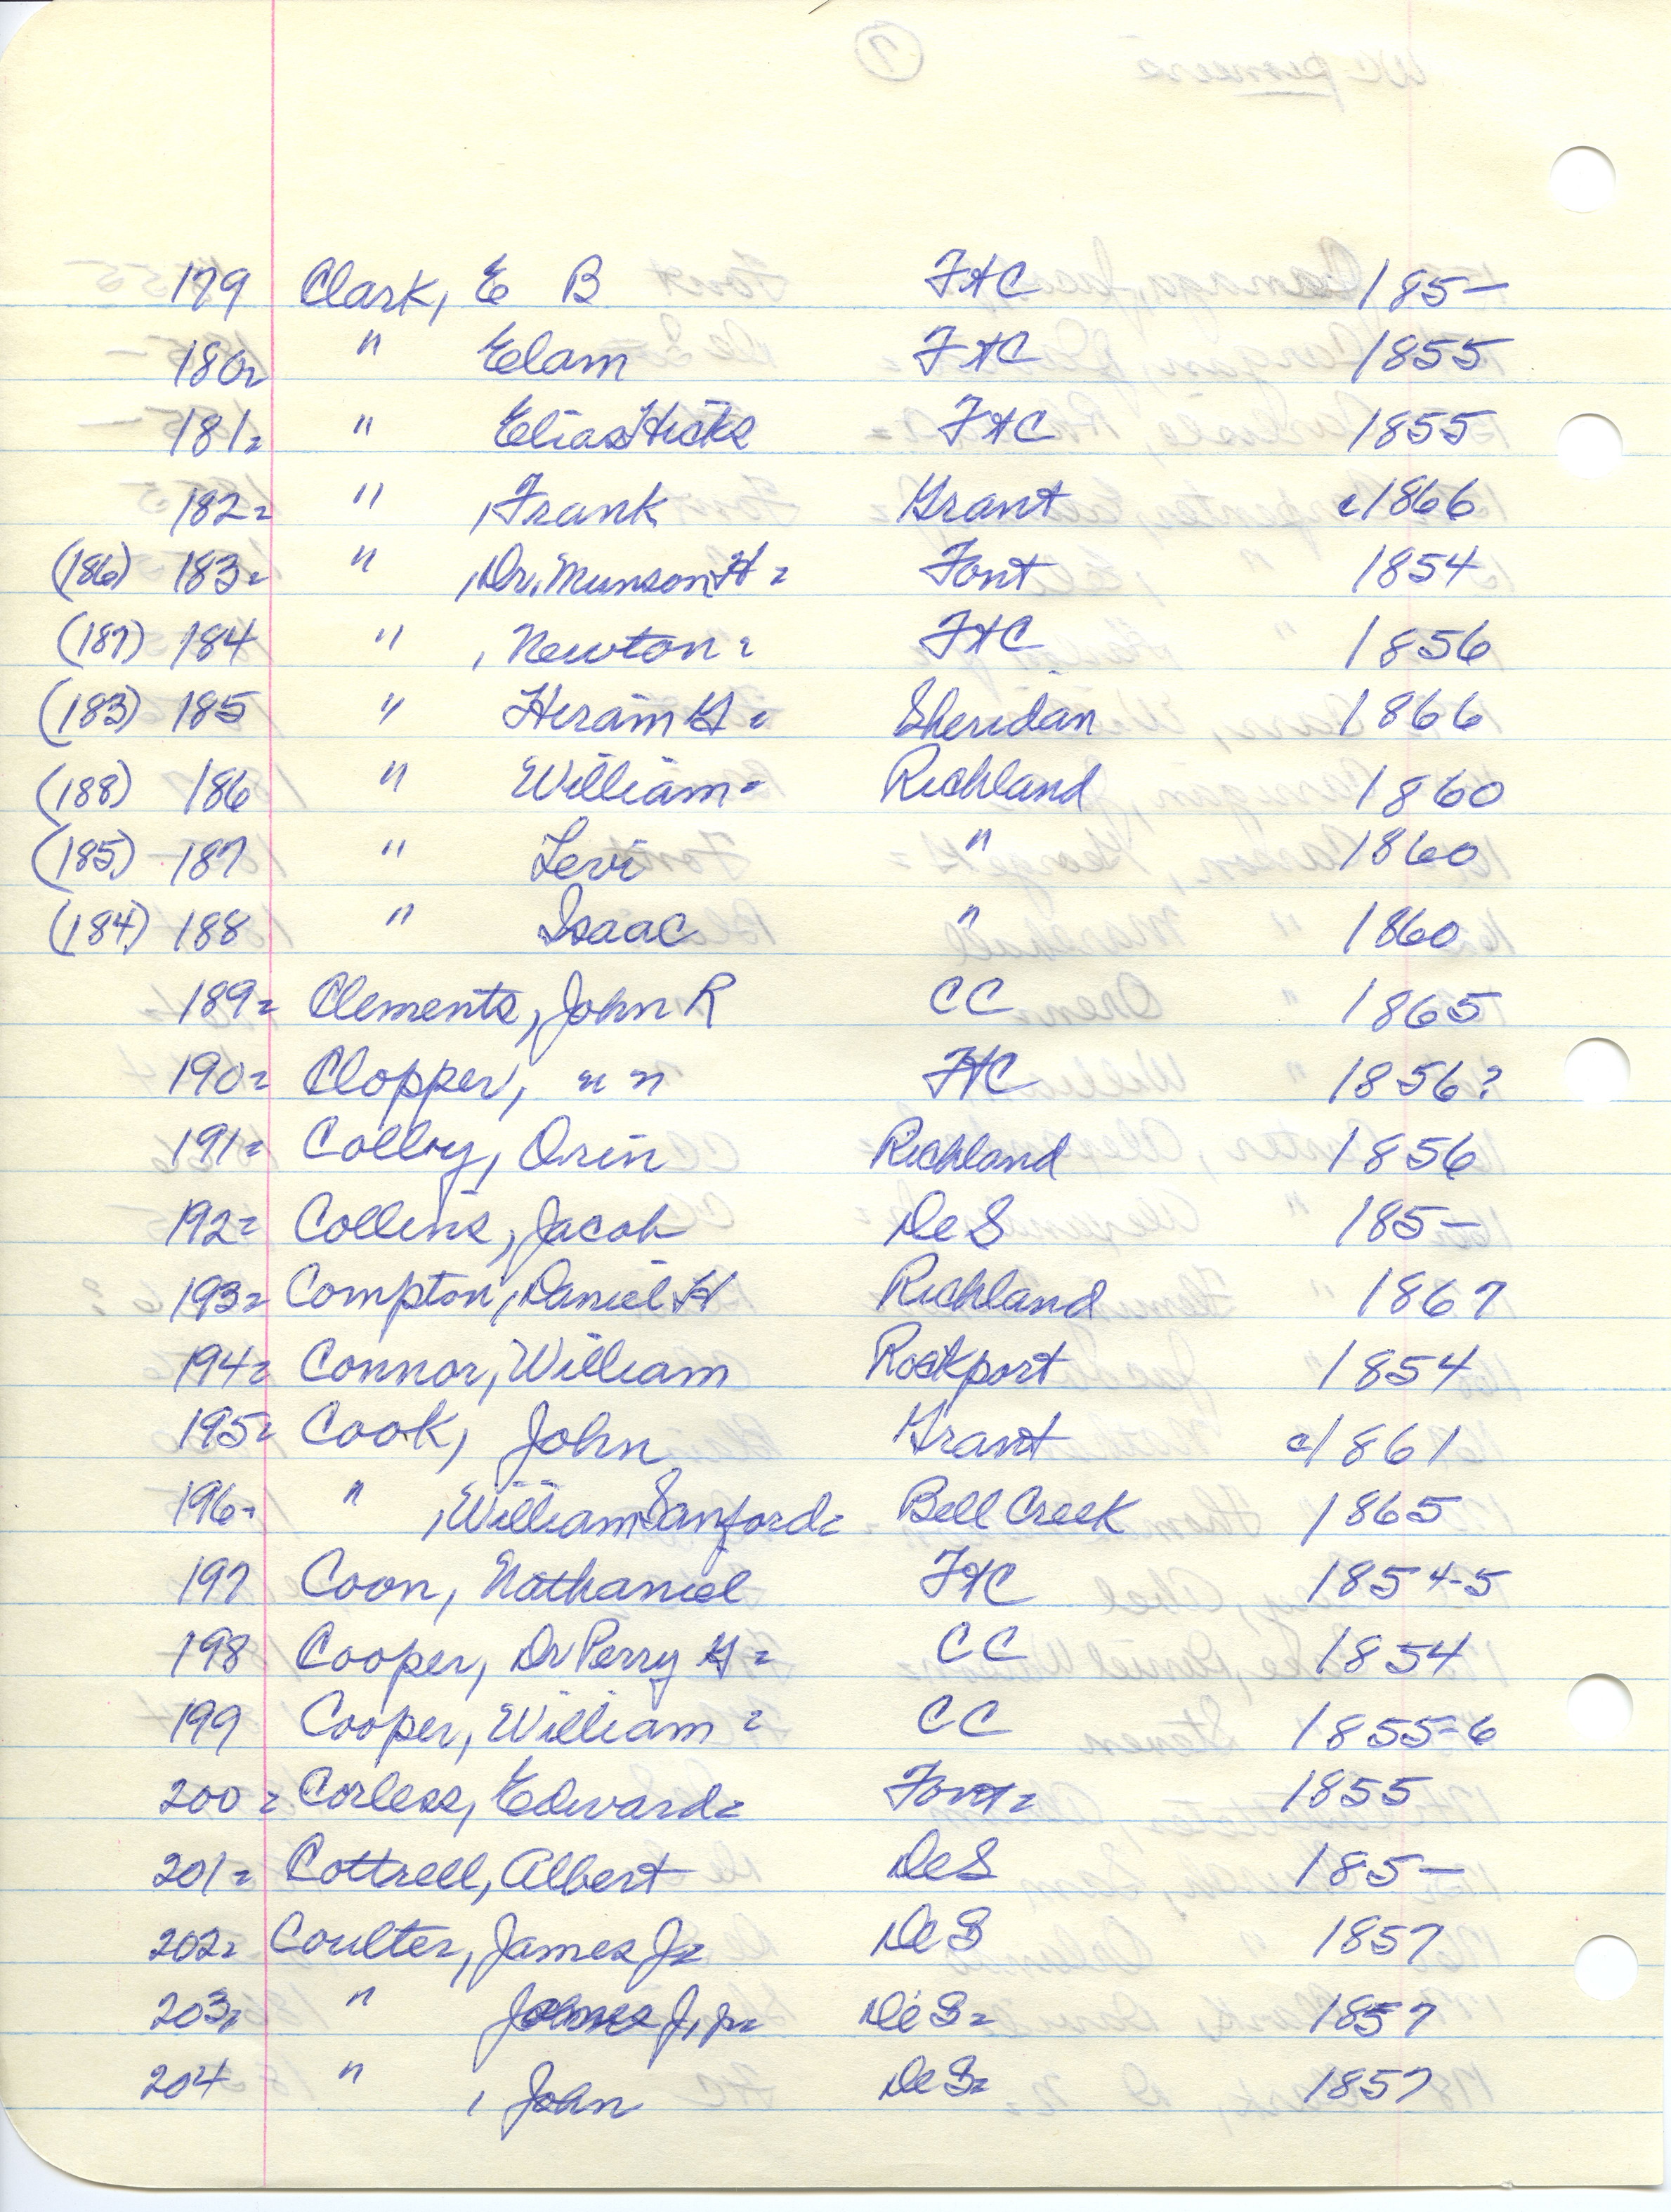 179 Clark, E B FtC 185-
180= " Elam FtC 1855
181= " Elias Hicks FtC 1855
182= " , Frank Grant c1866
(186) 183= " , Dr. Munson H = Font 1854
(187) 184 " , Newton = FtC 1856
(183) 185 " Hiram G = Sheridan 1866
(188) 186 " William = Richland 1860
(185) 187 " Levi " 1860
(184) 188 " Isaac " 1860
189= Clements, John R CC 1865
190= Clopper, " " FtC 1856?
191= Collby, Orin Richland 1856
192= Collins, Jacob DeS 185-
193= Compton, Daniel H Richland 1867
194= Connor, William Rockport 1854
195= Cook, John Grant c1861
196- " , William Sanford= Bell Creek 1865
197 Coon, Nathaniel FtC 1854-5
198 Cooper, Dr Perry G = CC 1854
199 Cooper, William = CC 1855-6
200= Corless, Edward= Font= 1855
201= Cottrell, Albert DeS 185-
202= Coulter, James J= DeS 1857
203= " J, jr= DeS= 1857
204 " , John DeS= 1857